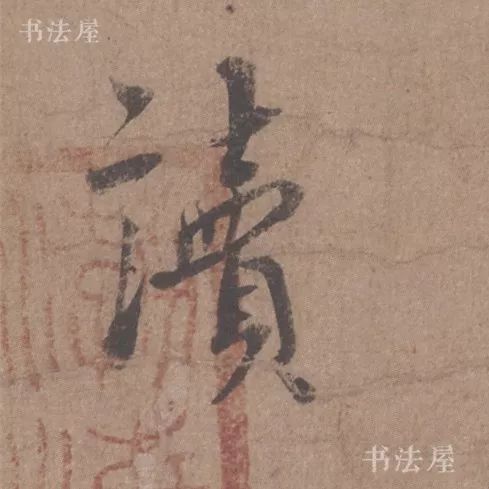 书法屋
讀
书法屋